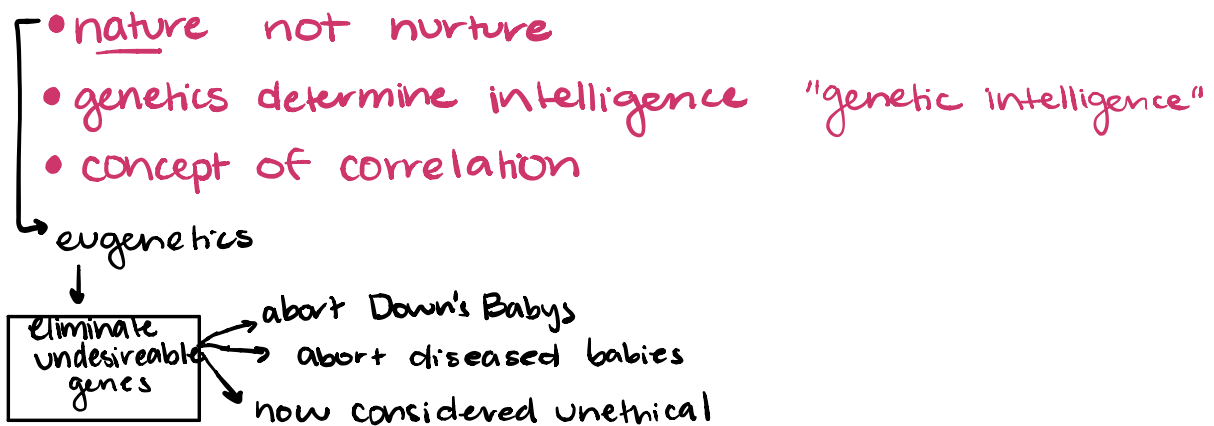 • nature not nurture
• genetics determine intelligence "genetic intelligence"
• concept of correlation
eugenetics
eliminate
undesireable
genes
abort Down's Babys
abort diseased babies
now considered unethical